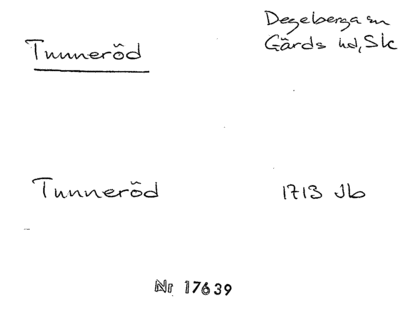 Degeberga sn
Tunneröd
Gärds hd, Sk
Tunneröd 1713 Jb
Nr 17639